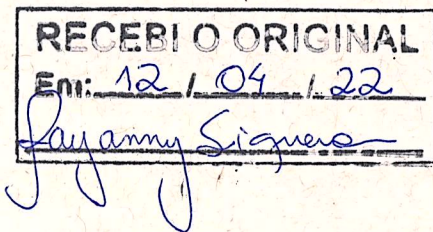 RECEBI O ORIGINAL
Em: 12 / 04 / 22
Layanny Siqueira